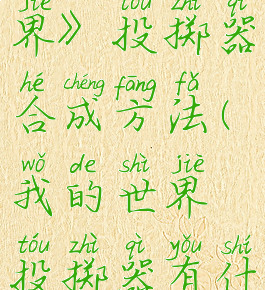 jiè tóu zhì qì
界》 投掷器
hé chéng fāng fǎ
合成方法(
wǒ de shì jiè
我的世界
tóu zhì qì yǒu shí
投掷器有什